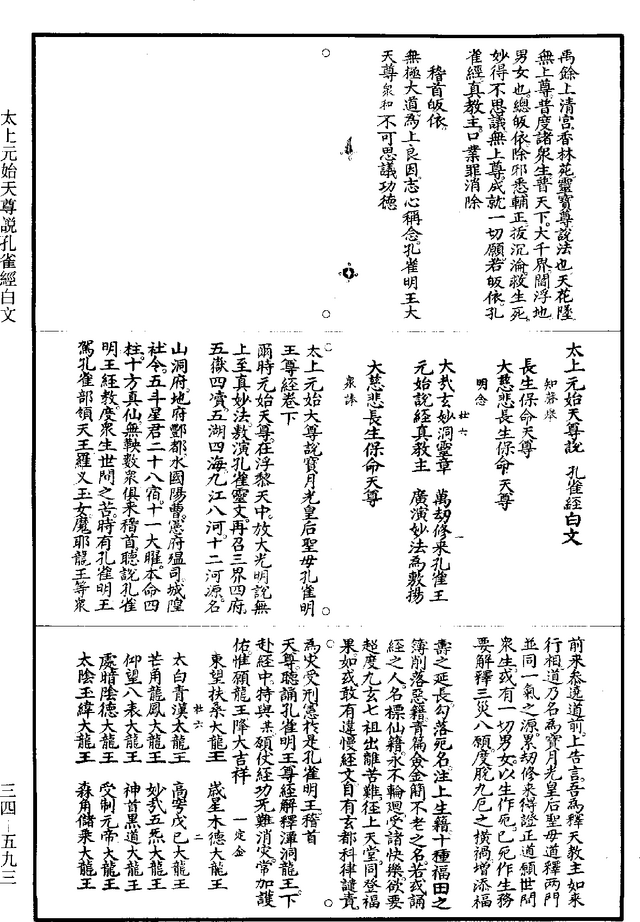 太上元始天尊說孔雀經白文
禹餘上清宮香林苑靈寶尊說法也天花墜
無上尊普度諸衆生普天下大千界閻浮地
男女也總皈依除邪悉輔正拔沉淪救生死
妙得不思議無上尊成就一切願若皈依孔
雀經真教主口業罪消除
稽首皈依
無極大道為上良因志心稱念孔雀明王大
天尊衆和不可思議功德
太上元始天尊說 孔雀經白文
知磬舉
長生保命天尊
大慈悲長生保命天尊
明念
廿六 一
大哉玄妙洞靈章 萬劫修來孔雀王
元始說經真教主 廣演妙法為敷揚
大慈悲長生保命天尊
衆誦
太上元始大尊說寶月光皇后聖母孔雀明
王尊經卷下
爾時元始天尊在浮黎天中放大光明說無
上至真妙法敷演孔雀靈文再召三界四府
五嶽四瀆五湖四海九江八河十二河源名
山洞府地府酆都水國陽曹憲府瘟司城隍
社令五斗星君二十八宿十一大曜本命四
柱十方真仙無鞅數衆俱來稽首聽說孔雀
明王經教度衆生世間之苦時有孔雀明王
駕孔雀部領天王羅叉玉女魔耶龍王等衆
前來叅遶道前上告言吾為釋天教主如來
行相道乃名為寶月光皇后聖母道釋兩門
並同一氣之源累劫修來得證正道願世間
衆生或有一切男女以生作死已死作生務
要解釋三災八願度脫九厄之橫禍增添福
壽之延長勾落死名注上生籍十種福田之
簿削落惡籍青篇僉金簡不老之名若或誦
經之人名標仙籍永不輪廻受諸快樂欲要
超度九玄七祖出離苦難徑上天堂同登福
果如或敢有違慢經文自有玄都科律譴責
為災受刑憲於是孔雀明王稽首
天尊聽誦孔雀明王尊經解釋渾洞龍王下
赴經中持與共願仗經功死難消灾常加護
佑惟願龍王降大吉祥 一定念
東望扶桑大龍王 歲星木德大龍王
廿六 二
太白青漢太龍王 高穹戊已大龍王
芒角龍鳳大龍王 妙哉五炁大龍王
仰望八表大龍王 神首黑道大龍王
處暗陰德大龍王 受制元帝大龍王
太陰玉緯大龍王 森角儲來大龍王
三四—五九三